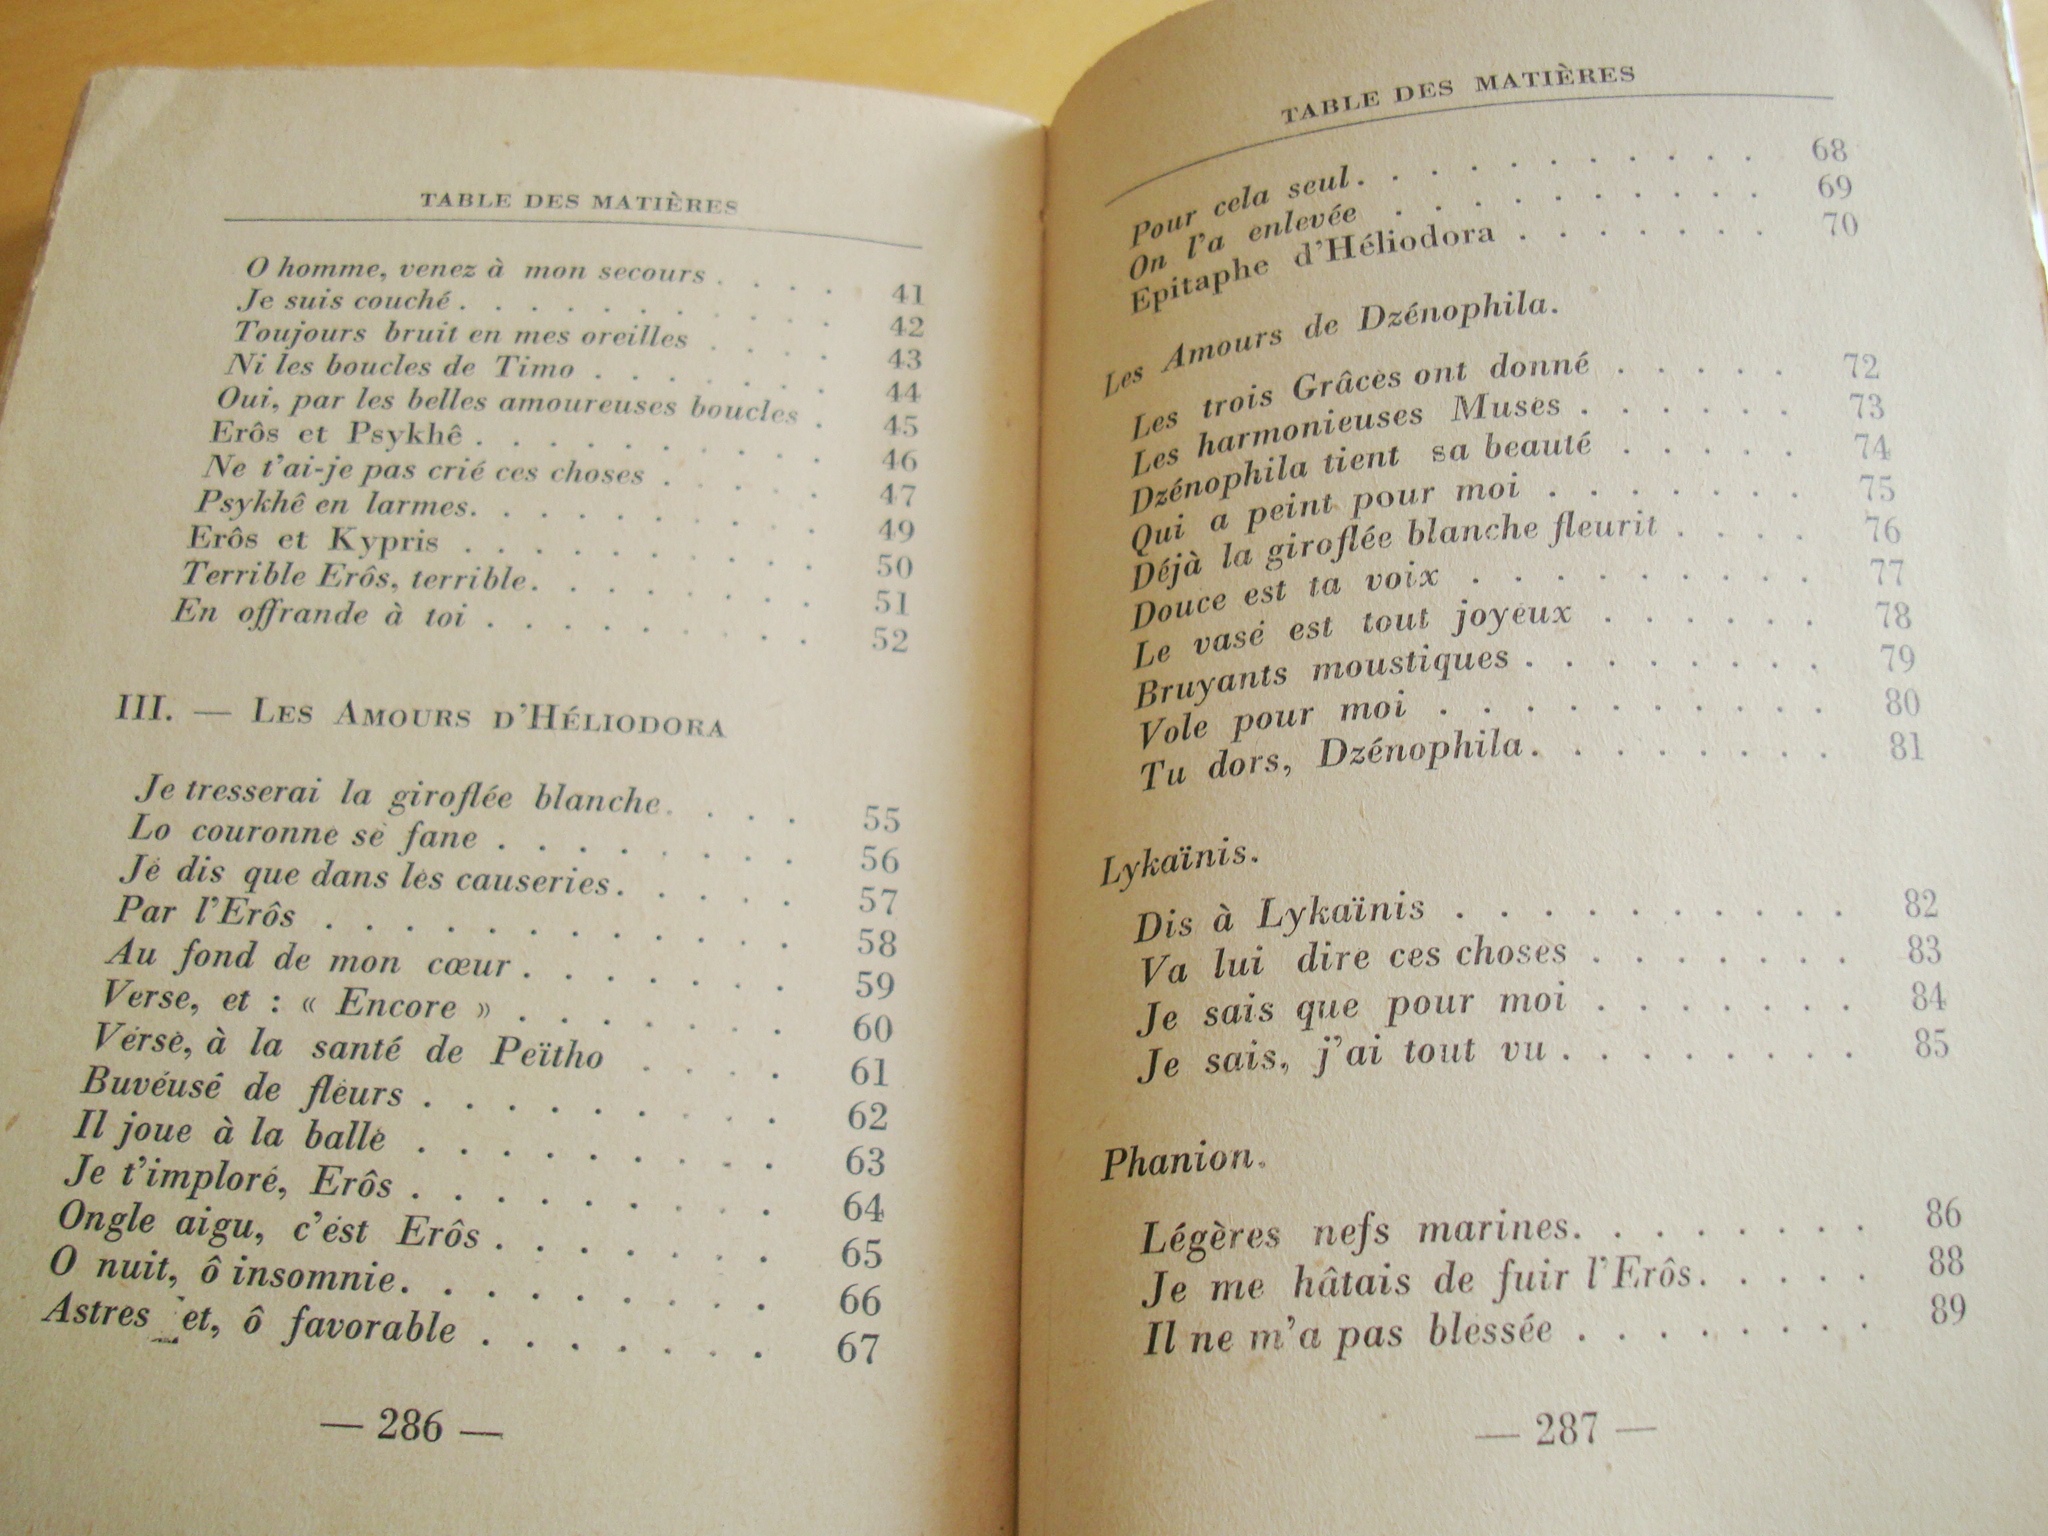 TABLE DES MATIÈRES
O homme, venez à mon secours . . . . 41
Je suis couché . . . . . . . . . . 42
Toujours bruit en mes oreilles . . . . 43
Ni les boucles de Timo . . . . . . . 44
Oui, par les belles amoureuses boucles . 45
Erôs et Psykhê . . . . . . . . . . 46
Ne t'ai-je pas crié ces choses . . . . . 47
Psykhê en larmes. . . . . . . . . . 49
Erôs et Kypris . . . . . . . . . . 50
Terrible Erôs, terrible. . . . . . . . 51
En offrande à toi . . . . . . . . . 52
III. — LES AMOURS D'HÉLIODORA
Je tresserai la giroflée blanche. . . . 55
Lo couronne se fane . . . . . . . . 56
Je dis que dans les causeries. . . . . 57
Par l'Erôs . . . . . . . . . . . . 58
Au fond de mon cœur . . . . . . . 59
Verse, et : « Encore » . . . . . . . 60
Verse, à la santé de Peïtho . . . . 61
Buveuse de fleurs . . . . . . . . . 62
Il joue à la balle . . . . . . . . . 63
Je t'implore, Erôs . . . . . . . . . 64
Ongle aigu, c'est Erôs . . . . . . . 65
O nuit, ô insomnie. . . . . . . . . 66
Astres et, ô favorable . . . . . . . 67
— 286 —
TABLE DES MATIÈRES
Pour cela seul. . . . . . . . . . . 68
On l'a enlevée . . . . . . . . . . 69
Epitaphe d'Héliodora . . . . . . . 70
Les Amours de Dzénophila.
Les trois Grâces ont donné . . . . . 72
Les harmonieuses Muses . . . . . . 73
Dzénophila tient sa beauté . . . . . 74
Qui a peint pour moi . . . . . . . 75
Déjà la giroflée blanche fleurit . . . . 76
Douce est ta voix . . . . . . . . . 77
Le vase est tout joyeux . . . . . . 78
Bruyants moustiques . . . . . . . . 79
Vole pour moi . . . . . . . . . . 80
Tu dors, Dzénophila. . . . . . . . 81
Lykaïnis.
Dis à Lykaïnis . . . . . . . . . . 82
Va lui dire ces choses . . . . . . . 83
Je sais que pour moi . . . . . . . 84
Je sais, j'ai tout vu . . . . . . . . 85
Phanion.
Légères nefs marines. . . . . . . . 86
Je me hâtais de fuir l'Erôs. . . . . 88
Il ne m'a pas blessée . . . . . . . . 89
— 287 —